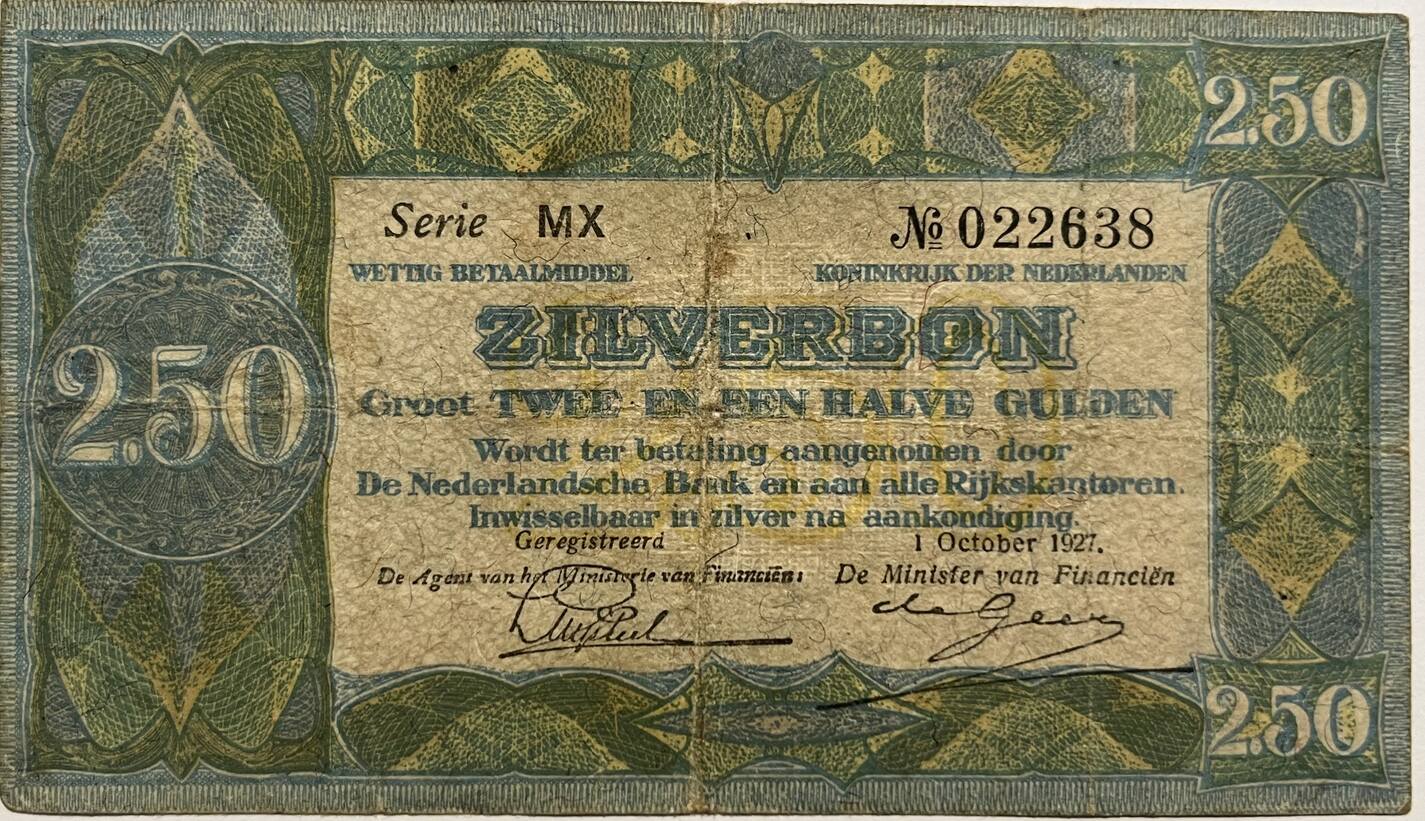 2.50
Serie MX
№ 022638
WETTIG BETAALMIDDEL
KONINKRIJK DER NEDERLANDEN
ZILVERBON
2.50
Groot TWEE EN EEN HALVE GULDEN
Wordt ter betaling aangenomen door
De Nederlandsche Bank en aan alle Rijkskantoren.
Inwisselbaar in zilver na aankondiging.
Geregistreerd
1 October 1927.
De Agent van het Ministerie van Financiën:
De Minister van Financiën
de Geer
2.50